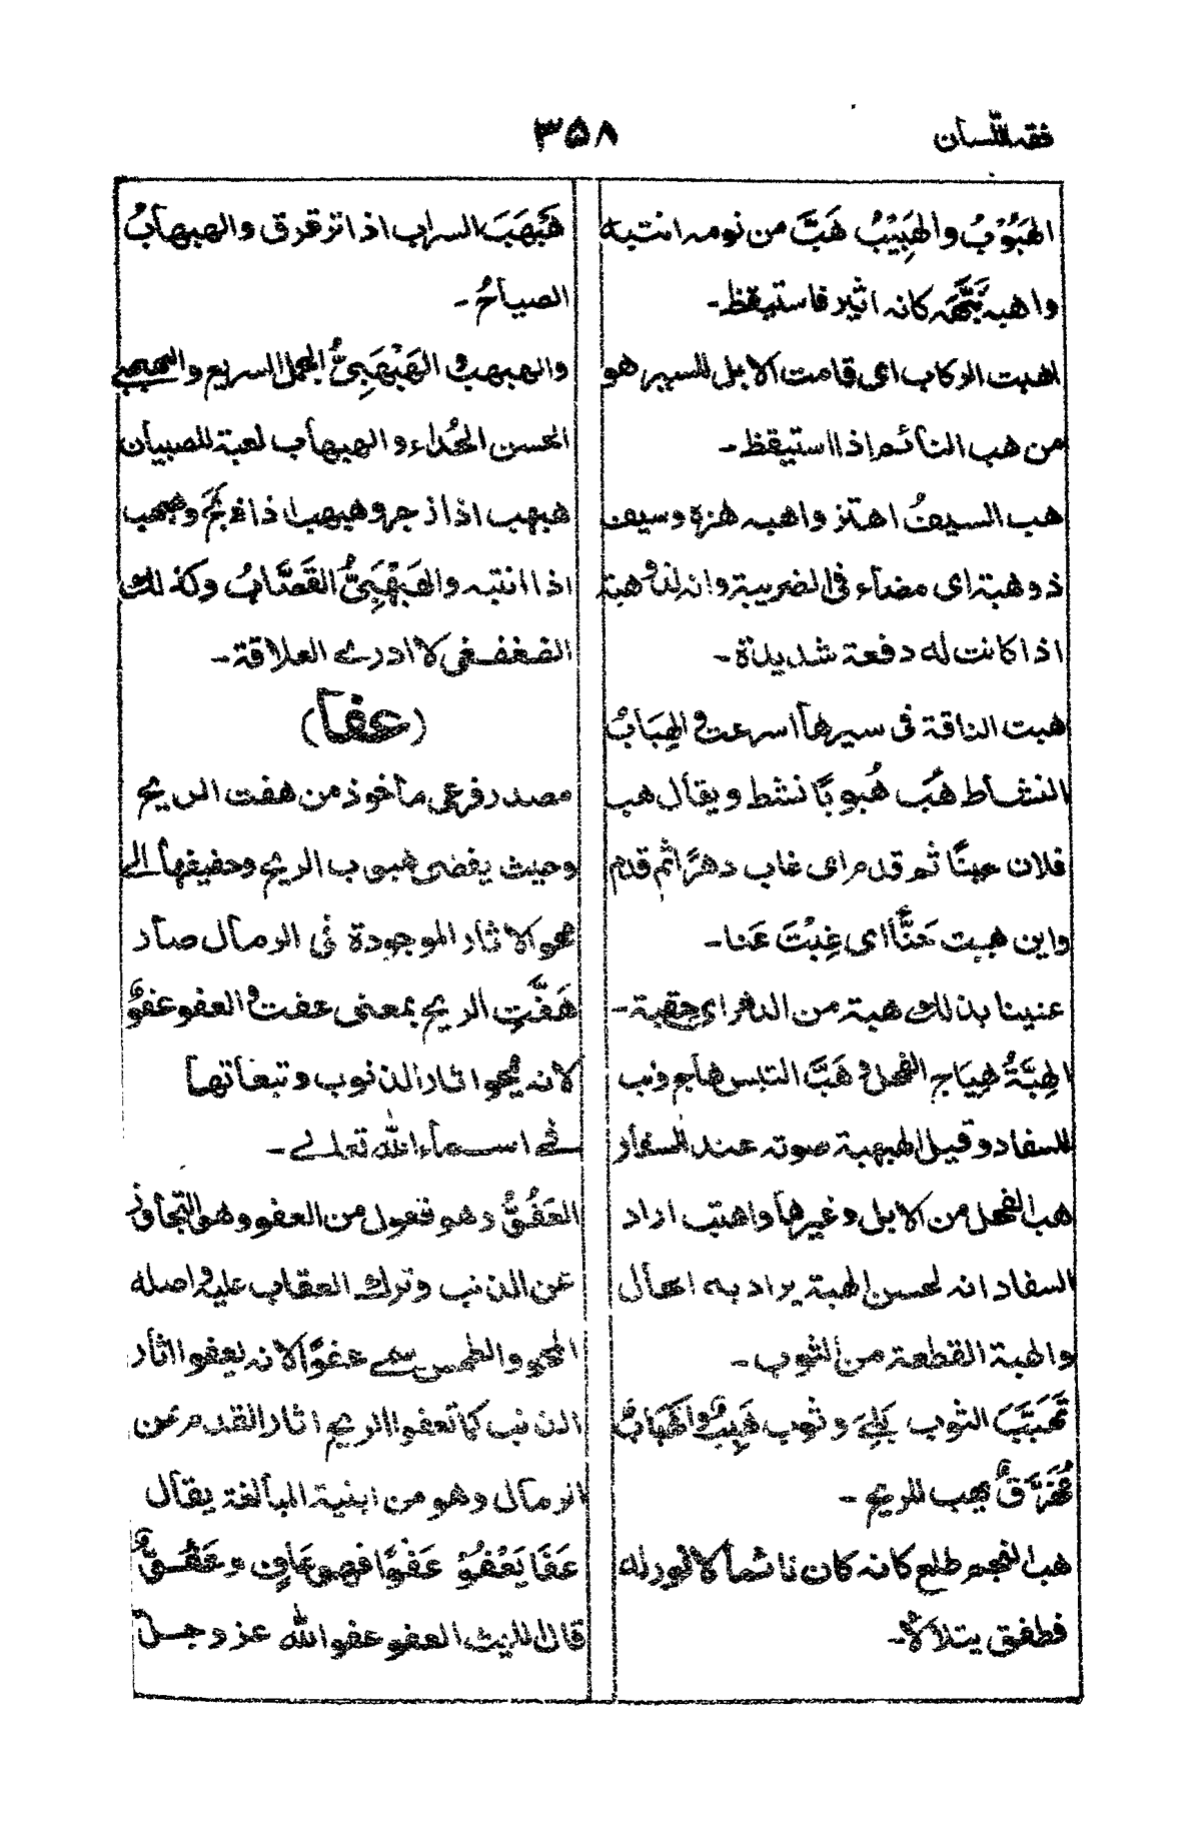 فقه اللسان
۳۵۸
الهَبُوْبُ والهَبِيْبُ هَبَّ من نومه انتبه
واهبه نَبَّهَه كانه اثير فاستيقظ۔
اهبت الركاب اى قامت الابل للسير هو
من هب النائم اذا استيقظ۔
هب السيفُ اهتز واهبه هزه وسيف
ذو هبة اى مضاء فى الضريبة وانه لذو هبة
اذا كانت له دفعة شديدة۔
هبت الناقة فى سيرها اسرعت و الهِبَابُ
النشاط هَبَّ هُبوبًا نشط ويقال هب
فلان حينًا ثم قدم اى غاب دهرًا ثم قدم
واين هببت عَنَّا اى غِبْتَ عَنا۔
عنينا بذلك هبة من الدهر اى حقبة۔
الهِبَّةُ هِيَاج الفحل و هَبَّ التيس هاج ونب
للسفاد وقيل الهبهبة صوته عند السفاد
هب الفحل من الابل وغيرها واهتب اراد
السفاد انه لحسن الهبة يراد به الحال
والهبة القطعة من الثوب۔
تَهَبَّبَ الثوب بَلِيَ وثوب هَبِبٌ واَهْبَابٌ
مُخَرَّقٌ يهب للريح۔
هب النجم طلع كانه كان نائما لا نور له
فطفق يتلألأ۔
هَبْهَبَ السراب اذا ترقرق والهبهابُ
الصياحُ۔
والهبهب و الهَبْهَبِيُّ الجمل السريع والهبهبى
الحسن الحُداء والهبهاب لعبة للصبيان
هبهب اذا زجر وهبهب اذا ذبح وهبهب
اذا انتبه والهَبْهَبِيُّ القَصَّابُ وكذلك
الفغفغى لا ادرى العلاقة۔
(عفا)
مصدر فرعى ماخوذ من هفت الريح
وحيث يفضى هبوب الريح وحفيفها الى
محو الاثار الموجودة فى الرمال صار
هَفَّتِ الريح بمعنى عفت و العفو عفوٌ
لانه يمحوا اثار الذنوب وتبعاتها
فى اسماء الله تعلى۔
العَفُوُّ وهو فعول من العفو وهو التجاوز
عن الذنب وترك العقاب عليه واصله
المحو والطمس سمى عفوًا لانه يعفوا اثار
الذنب كما تعفوا الريح اثار القدم عن
الرمال وهو من ابنية المبالغة يقال
عَفَا يَعْفُوْ عَفْوًا فهو عَافٍ وعَفُوٌّ
قال الليث العفو عفو الله عز وجل